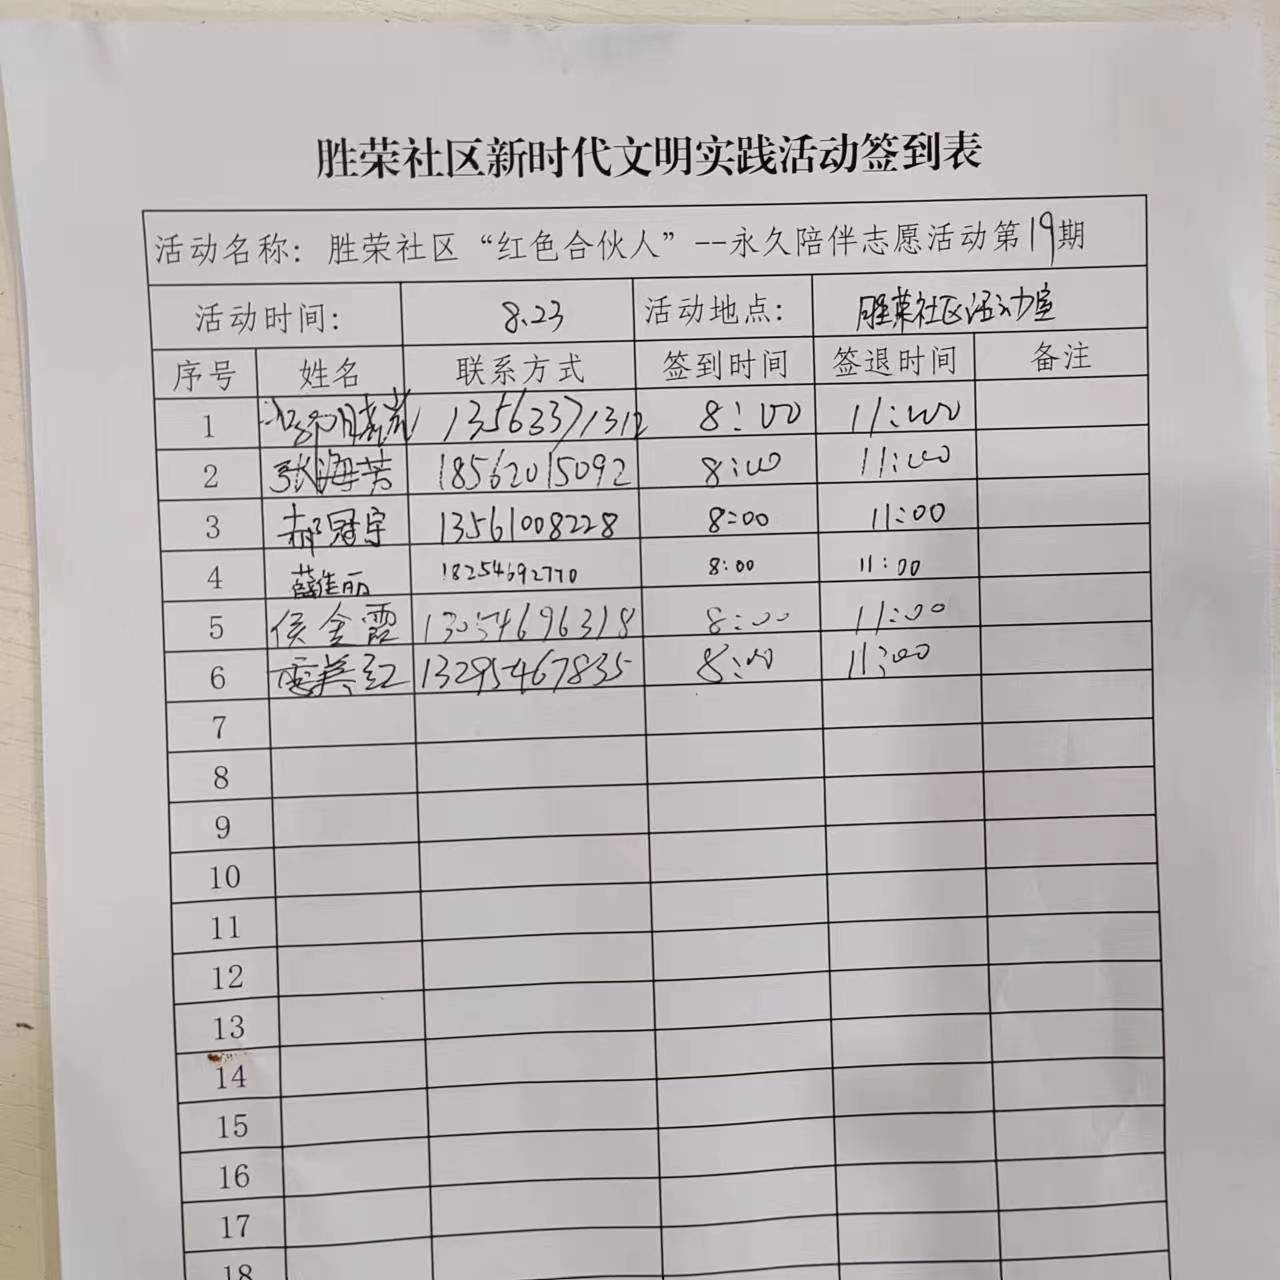 胜荣社区新时代文明实践活动签到表
活动名称：胜荣社区“红色合伙人”--永久陪伴志愿活动第19期
活动时间： 8.23 活动地点： 胜荣社区活动室
序号 姓名 联系方式 签到时间 签退时间 备注
1 13563371312 8:00 11:00
2 张海芳 18562015092 8:00 11:00
3 郝冠宇 13561008228 8:00 11:00
4 薛佳丽 18254692770 8:00 11:00
5 侯金霞 13054696318 8:00 11:00
6 美红 13295467835 8:00 11:00
7
8
9
10
11
12
13
14
15
16
17
18